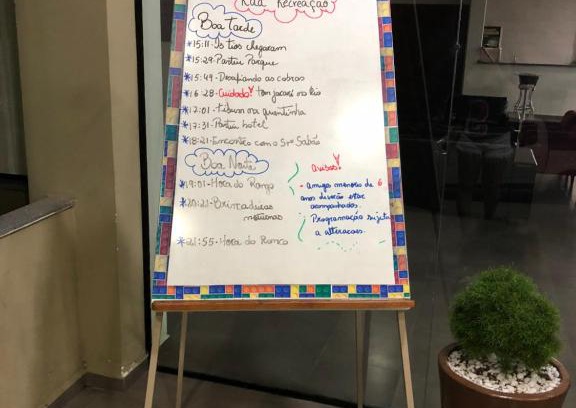 Recreação
Boa Tarde
*15:11-Os tios chegaram
*15:29-Partiu Parque
*15:49-Desafiando as cobras
*16:28-Cuidado! tem jacaré no Rio
*17:01-Tibum na quentinha
*17:31-Partiu hotel
*18:21-Encontro com o Srº Sabão
Boa Noite
*19:01-Hora do Rango
*20:21-Brincadeiras
noturnas
*21:55-Hora do Ronco
avisos!
* amigos menores de 6
anos deverão estar
acompanhados.
Programação sujeita
a alterações.